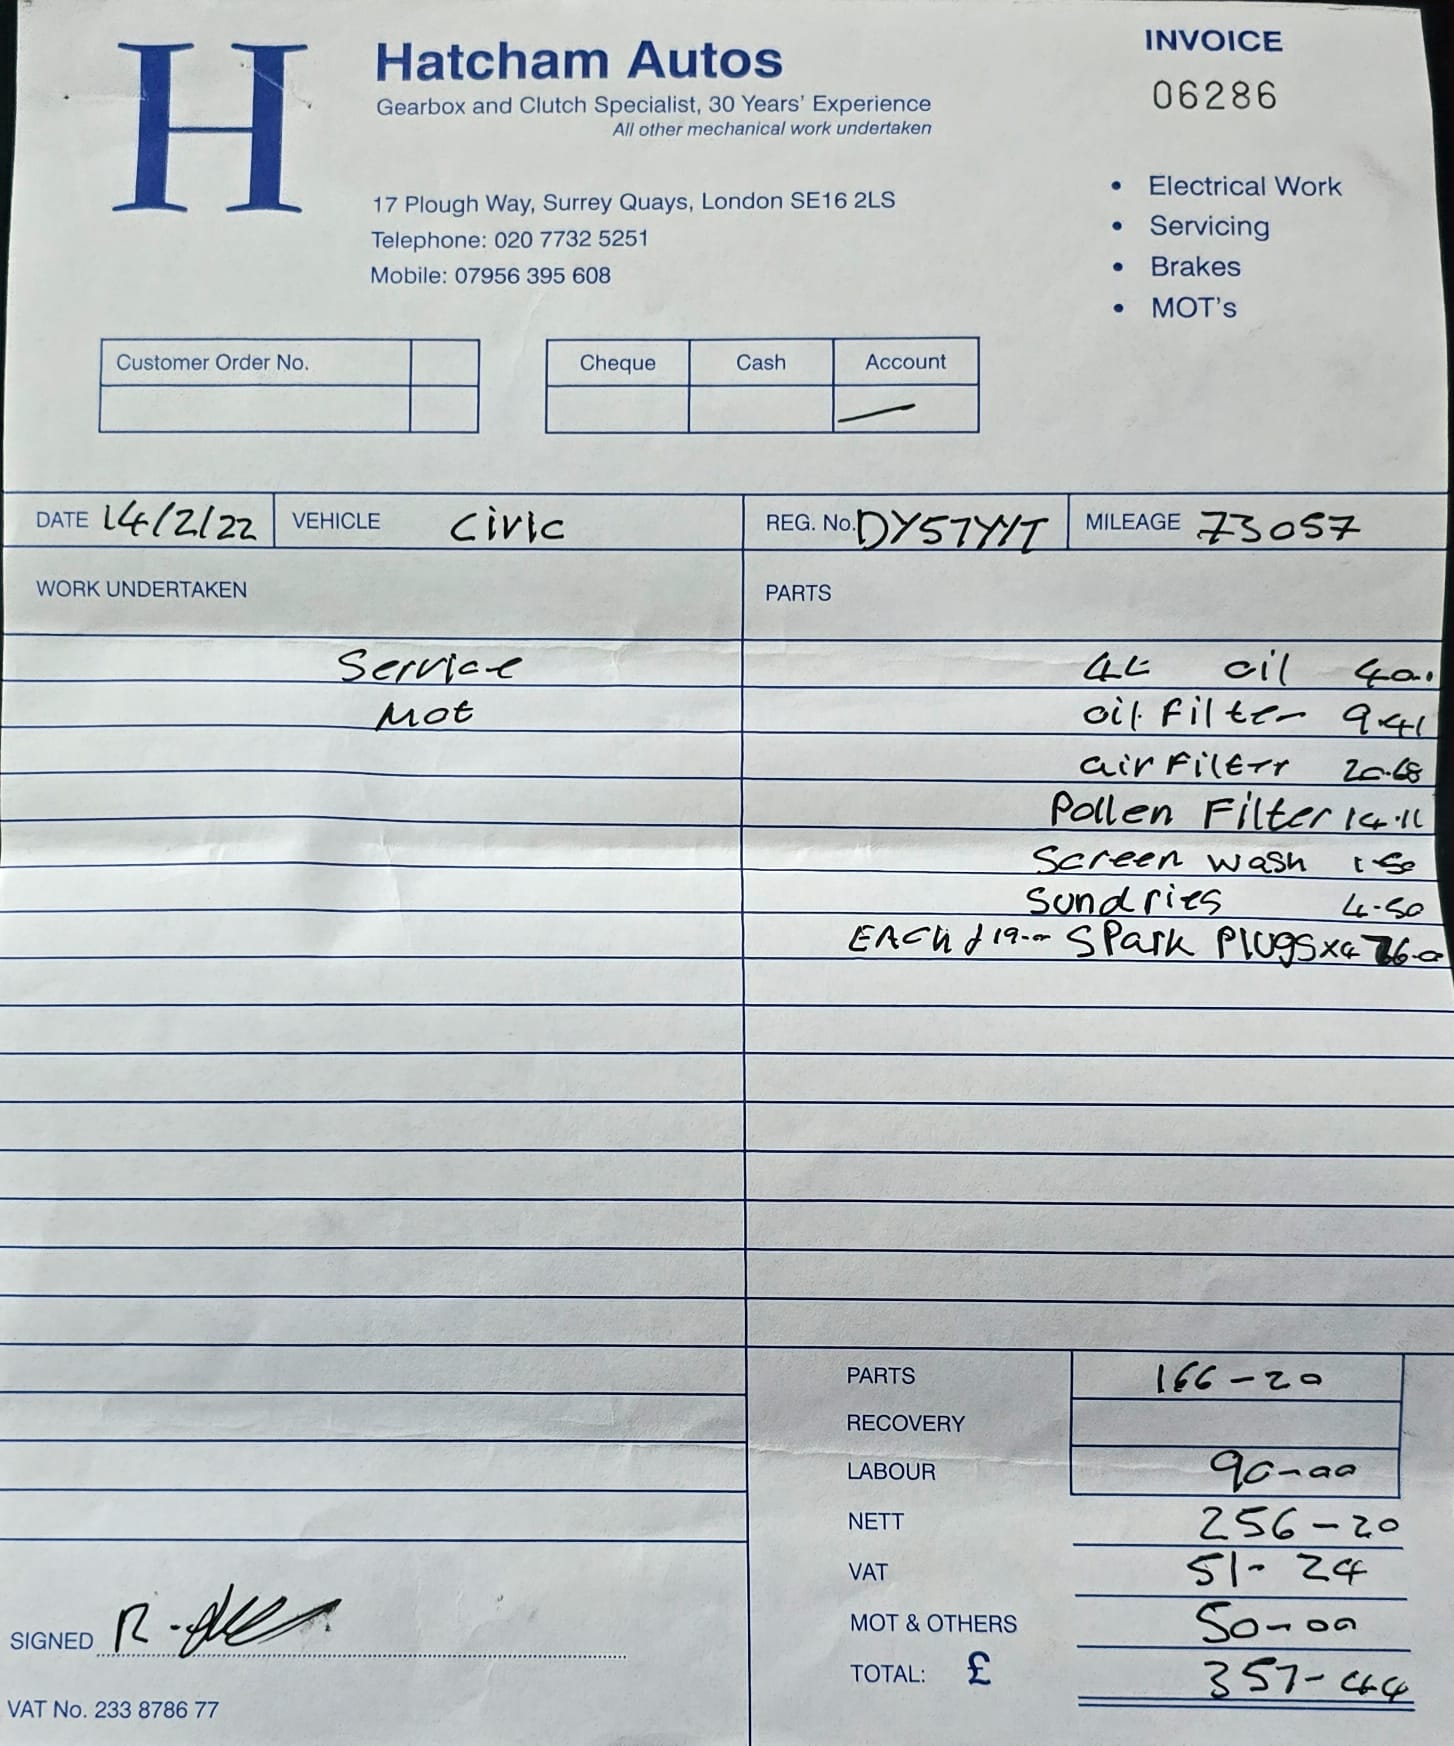 H
Hatcham Autos
Gearbox and Clutch Specialist, 30 Years' Experience
All other mechanical work undertaken
17 Plough Way, Surrey Quays, London SE16 2LS
Telephone: 020 7732 5251
Mobile: 07956 395 608
INVOICE
06286
• Electrical Work
• Servicing
• Brakes
• MOT's
Customer Order No.
Cheque Cash Account
DATE 14/2/22 VEHICLE Civic REG. No. DY57YYT MILEAGE 73057
WORK UNDERTAKEN
Service
Mot
PARTS
4L oil 40.
oil filter 9.41
air Filter 20.68
Pollen Filter 14.11
Screen wash 1.50
Sundries 4-50
EACH £19-00 SPark Plugs x4 76-0
PARTS 166-20
RECOVERY
LABOUR 90-00
NETT 256-20
VAT 51-24
MOT & OTHERS 50-00
TOTAL: £ 357-44
SIGNED
VAT No. 233 8786 77